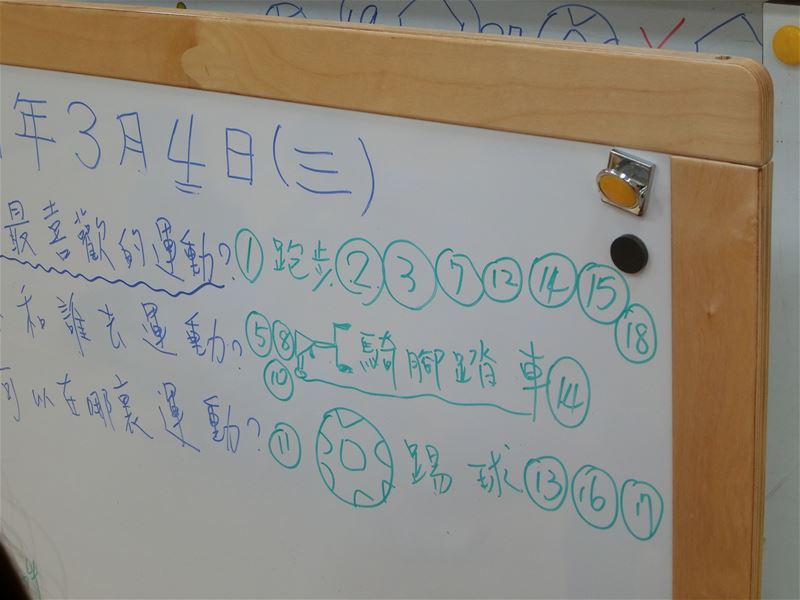 年3月4日(三)
最喜歡的運動? ① 跑步 ② ③ ⑦ ⑫ ⑭ ⑮ ⑱
和誰去運動? ⑤ ⑧ ⑩ 騎腳踏車 ⑭
可以在哪裏運動? ⑪ 踢球 ⑬ ⑯ ⑰